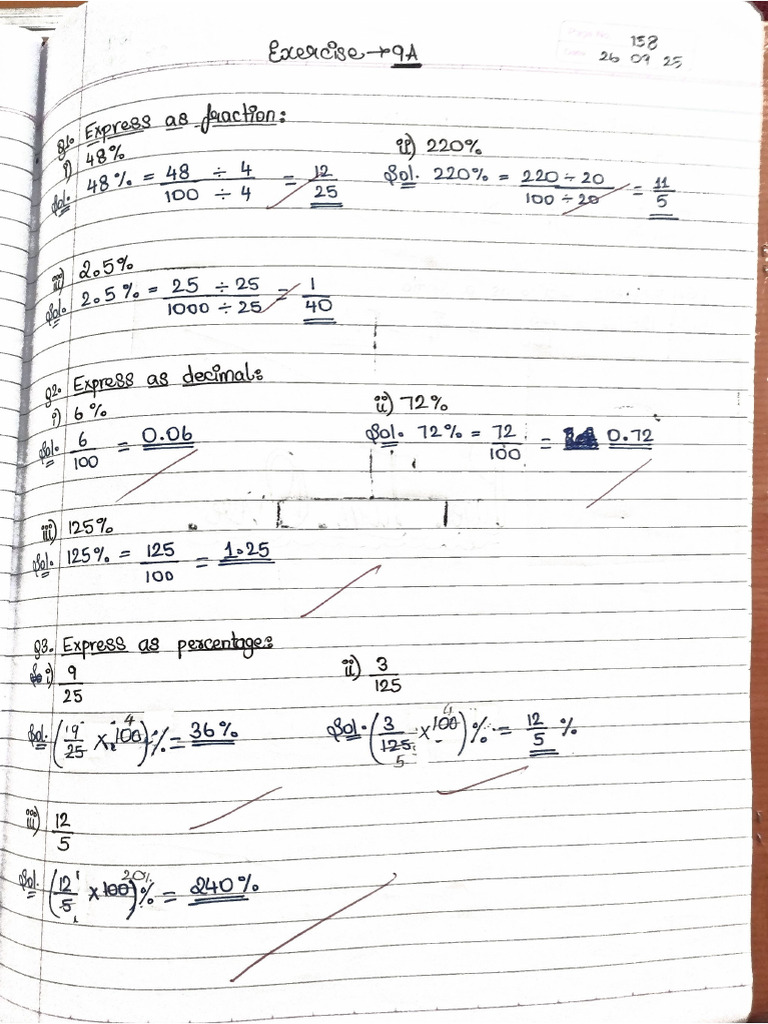 158
26 09 25
Exercise → 9A
Q1. Express as fraction:
i) 48%
Sol. 48% = 48 ÷ 4 / 100 ÷ 4 = 12/25
ii) 220%
Sol. 220% = 220 ÷ 20 / 100 ÷ 20 = 11/5
iii) 2.5%
Sol. 2.5% = 25 ÷ 25 / 1000 ÷ 25 = 1/40
Q2. Express as decimal:
i) 6%
Sol. 6/100 = 0.06
ii) 72%
Sol. 72% = 72/100 = 0.72
iii) 125%
Sol. 125% = 125/100 = 1.25
Q3. Express as percentage:
i) 9/25
Sol. (9/25 × 100 4)% = 36%
ii) 3/125
Sol. (3/125 5 × 100 4)% = 12/5 %
iii) 12/5
Sol. (12/5 × 100 20)% = 240%